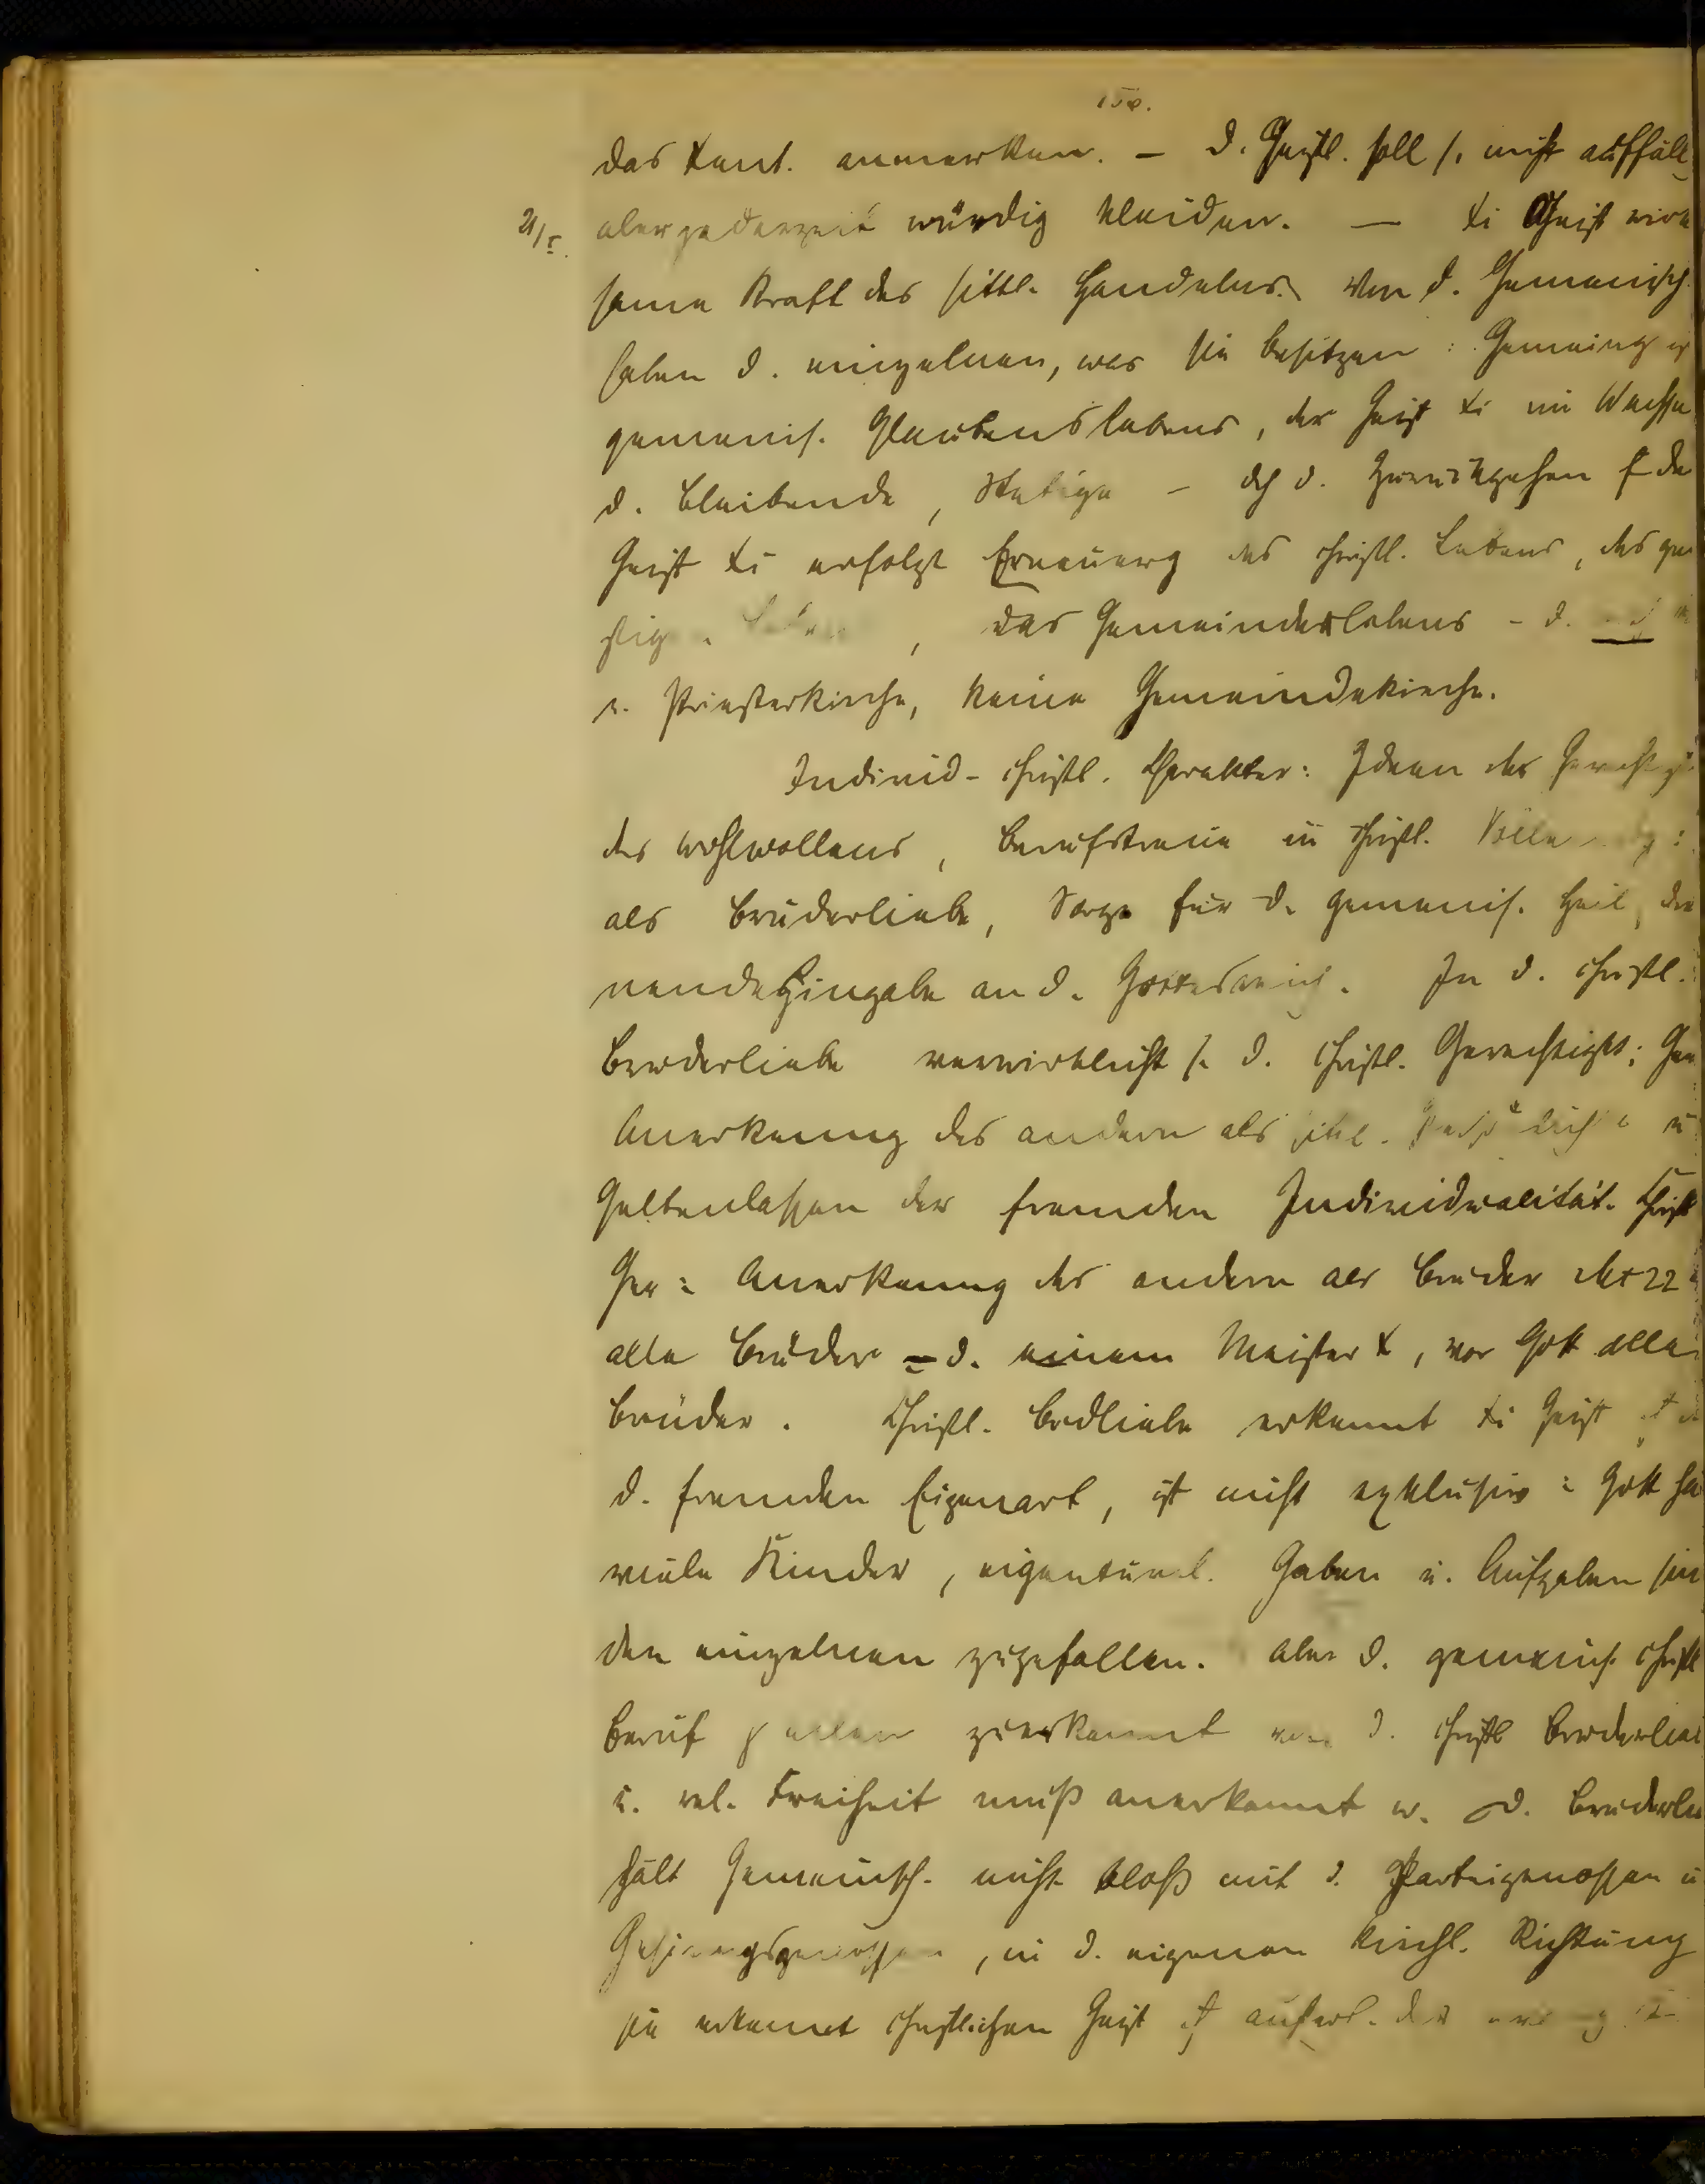 150.
das Xent. anmerken. – D. Geistl. soll s. nicht auffäll.
21/I. aber jederzeit würdig kleiden. — Xi Geist wirk
same Kraft des sittl. Handelns. Von d. Gemeinsch.
haben d. einzelnen, was sie besitzen: Gemeing
gemeins. Glaubenslebens, der Geist Xi im Wechsel
d. bleibende, Stetige – dch d. Zurückgehen f de
Geist Xi erfolgt Erneuerg des christl. Lebens, des gei
stigen Lebens, des Gemeindelebens – d.
e. Priesterkirche, keine Gemeindekirche.
Individ- christl. Charakter: Ideen der Gerechtigk
des Wohlwollens, Berufstreue in christl.
als Bruderliebe, Sorge für d. gemeins. Heil, die
nende Hingabe an d. Gottesreich. In d. christl.
Bruderliebe verwirklicht s. d. christl. Gerechtigkt: Ger
Anerkenng des andern als sittl. Persönlichk u
Geltenlassen der fremden Individualität. Christl
Ger: Anerkenng des andern als Bruder Mt 22
alle Brüder = d. einem Meister X, vor Gott alle
Brüder. Christl. Brdliebe erkennt Xi Geist
d. fremden Eigenart, ist nicht exklusiv: Gott ha
viele Kinder, eigentüml. Gaben u. Aufgaben sin
den einzelnen zugefallen. Aber d. gemeins. christl
Beruf allen zuerkannt von d. christl Bruderlie
u. rel. Freiheit muß anerkannt w. D. Bruderlie
hält Gemeinsch. nicht bloß mit d. Parteigenossen u
Gesinngsgenossen, in d. eigenen kirchl. Richtung
sie erkennt christlichen Geist auch außerh. der